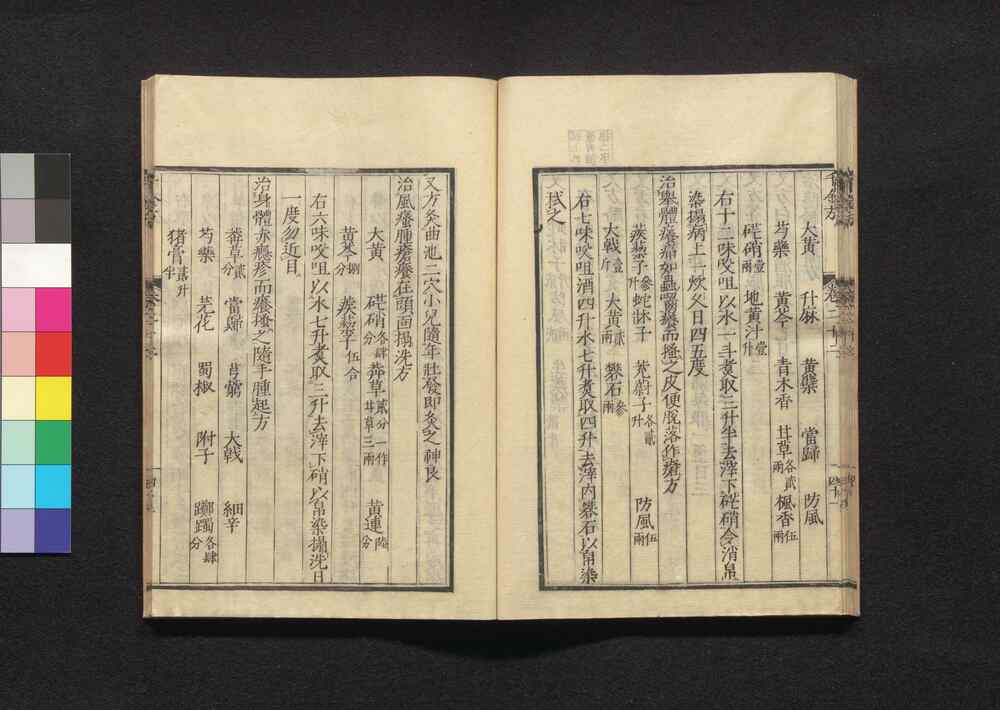 大黄 升麻 黄蘗 當歸 防風
芍藥 黄芩 青木香 甘草各貳兩 楓香伍兩
硭硝壹兩 地黄汁壹升
右十三味㕮咀以水一斗煮取三升半去滓下硭硝令消帛
染搨病上一炊久日四五度
治舉體瘡痛如蟲囓癢而搔之皮便脱落作瘡方
蒺䔧子參升 蛇牀子 茺蔚子各貳升 防風伍兩
大戟壹斤 大黄貳兩 礬石參兩
右七味㕮咀酒四升水七升煮取四升去滓内礬石以帛染
拭之
又方灸曲池二穴小兒隨年壯發即灸之神良
治風瘙腫瘡癢在頭面搨洗方
大黄 硭硝各肆分 莾草貳分一作甘草三兩 黄連陸分
黄芩捌分 蒺䔧子伍合
右六味㕮咀以水七升煮取三升去滓下硝以帛染搨洗日
一度勿近目
治身體赤癮疹而癢搔之隨手腫起方
莾草貳分 當歸 芎藭 大戟 細辛
芍藥 芫花 蜀椒 附子 躑躅各肆分
猪膏貳升半